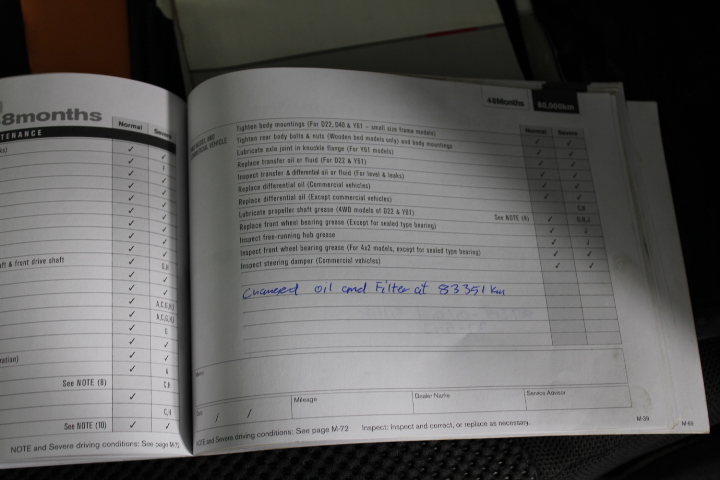 8months
Normal
TENANCE
Severe
aft & front drive shaft
C,H
A,C,G,H,I
A,C,G,H,I
G
See NOTE (8)
C,H
C,H
See NOTE (10)
NOTE and Severe driving conditions: See page M-72
48Months 80,000km
COMMERCIAL VEHICLE
Normal Severe
Tighten body mountings (For D22, D40 & Y61 – small size frame models)
Tighten rear body bolts & nuts (Wooden bed models only) and body mountings
Lubricate axle joint in knuckle flange (For Y61 models)
Replace transfer oil or fluid (For D22 & Y61)
Inspect transfer & differential oil or fluid (For level & leaks)
Replace differential oil (Commercial vehicles)
Replace differential oil (Except commercial vehicles)
Lubricate propeller shaft grease (4WD models of D22 & Y61)
Replace front wheel bearing grease (Except for sealed type bearing) See NOTE (4)
Inspect free-running hub grease
Inspect front wheel bearing grease (For 4x2 models, except for sealed type bearing)
Inspect steering damper (Commercial vehicles)
Changed oil and Filter at 83351 km
Date / / Mileage Dealer Name Service Advisor
NOTE and Severe driving conditions: See page M-72 Inspect: Inspect and correct, or replace as necessary.
M-59